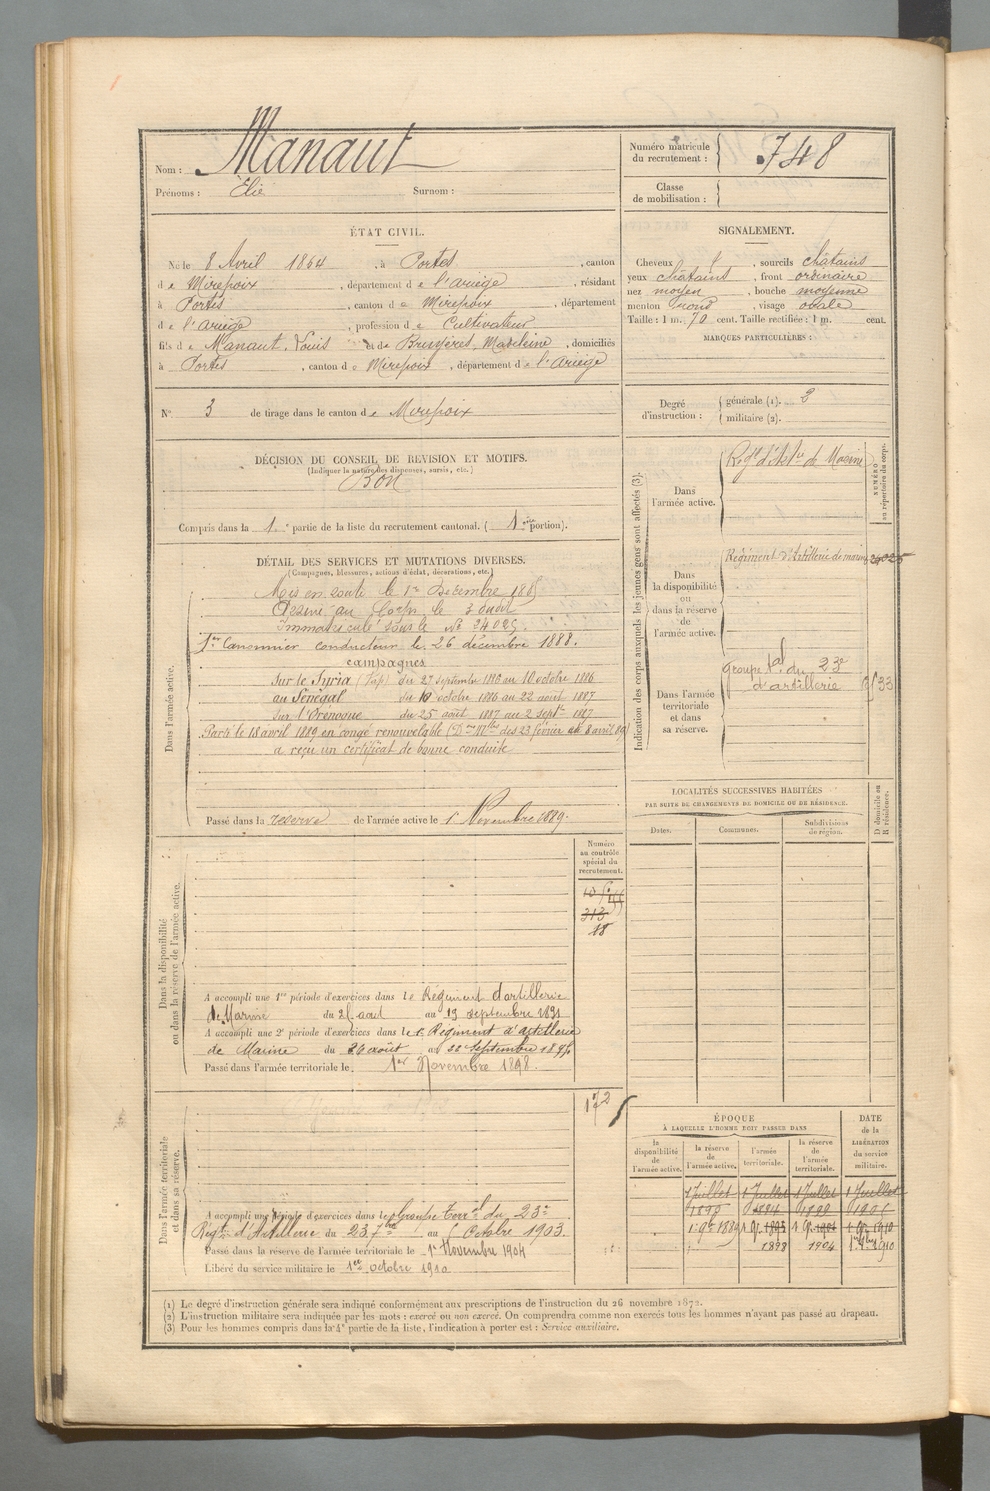 Nom : Manaut
Prénoms : Élie Surnom :
Numéro matricule du recrutement : 748
Classe de mobilisation :
ÉTAT CIVIL.
Né le 8 Avril 1864, à Portes, canton
de Mirepoix, département de l'Ariège, résidant
à Portes, canton de Mirepoix, département
de l'Ariège, profession de Cultivateur
fils de Manaut, Louis et de Bruyères, Madeleine, domiciliés
à Portes, canton de Mirepoix, département de l'Ariège
SIGNALEMENT.
Cheveux, sourcils châtains
yeux châtains, front ordinaire
nez moyen, bouche moyenne
menton rond, visage ovale
Taille : 1 m. 70 cent. Taille rectifiée : 1 m. cent.
MARQUES PARTICULIÈRES :
N° 3 de tirage dans le canton de Mirepoix
Degré d'instruction : générale (1). 2
militaire (2).
DÉCISION DU CONSEIL DE REVISION ET MOTIFS.
(Indiquer la nature des dispenses, sursis, etc.)
Bon
Compris dans la 1e partie de la liste du recrutement cantonal. (1ère portion).
DÉTAIL DES SERVICES ET MUTATIONS DIVERSES.
(Campagnes, blessures, actions d'éclat, décorations, etc.)
Dans l'armée active.
Mis en route le 1er Décembre 1885
Arrivé au Corps le 3 dudit
Immatriculé sous le N° 24025.
1er Canonnier conducteur le 26 décembre 1888.
campagnes
Sur le Syria du 27 septembre 1886 au 10 octobre 1886
au Sénégal du 10 octobre 1886 au 22 août 1887
Sur l'Orénoque du 25 août 1887 au 2 septbre 1887
Parti le 18 avril 1889 en congé renouvelable (Dons Mlles des 23 février au 8 avril 89)
a reçu un certificat de bonne conduite
Passé dans la réserve de l'armée active le 1 Novembre 1889.
Indication des corps auxquels les jeunes gens sont affectés (3).
NUMÉRO au répertoire du corps.
Dans l'armée active.
Regt d'Artie de Marine
Dans la disponibilité ou dans la réserve de l'armée active.
Régiment d'Artillerie de marine 24025
Dans l'armée territoriale et dans sa réserve.
Groupe tal du 23e
d'artillerie
LOCALITÉS SUCCESSIVES HABITÉES
PAR SUITE DE CHANGEMENTS DE DOMICILE OU DE RÉSIDENCE.
Dates. Communes. Subdivisions de région. D domicile ou R résidence.
Dans la disponibilité ou dans la réserve de l'armée active.
Numéro au contrôle spécial du recrutement.
313
18
A accompli une 1re période d'exercices dans le Régiment d'artillerie
de Marine du août au 19 septembre 1891
A accompli une 2e période d'exercices dans le 1er Régiment d'artillerie
de Marine du 26 août au 22 septembre
Passé dans l'armée territoriale le 1er Novembre 1898.
Dans l'armée territoriale et dans sa réserve.
172
A accompli une période d'exercices dans le Groupe Terral du 23e
Régt d'Artillerie du 23 7bre au Octobre 1903.
Passé dans la réserve de l'armée territoriale le 1er Novembre 1904
Libéré du service militaire le 1er octobre 1910
ÉPOQUE
À LAQUELLE L'HOMME DOIT PASSER DANS
DATE de la LIBÉRATION du service militaire.
la disponibilité de l'armée active. la réserve de l'armée active. l'armée territoriale. la réserve de l'armée territoriale.
1 Juillet 1 Juillet 1 Juillet 1 Juillet
1898 1904 1910
(1) Le degré d'instruction générale sera indiqué conformément aux prescriptions de l'instruction du 26 novembre 1872.
(2) L'instruction militaire sera indiquée par les mots : exercé ou non exercé. On comprendra comme non exercés tous les hommes n'ayant pas passé au drapeau.
(3) Pour les hommes compris dans la 4e partie de la liste, l'indication à porter est : Service auxiliaire.